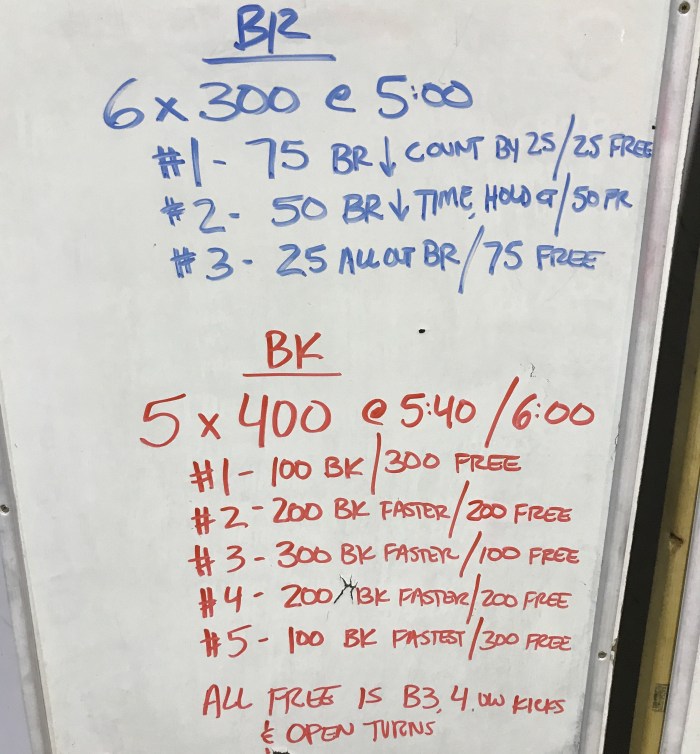 BR
6 x 300 @ 5:00
#1 - 75 BR ↓ COUNT BY 25/25 FREE
#2 - 50 BR ↓ TIME, HOLD CT/50 FR
#3 - 25 ALL OUT BR/75 FREE
BK
5 x 400 @ 5:40/6:00
#1 - 100 BK/300 FREE
#2 - 200 BK FASTER/200 FREE
#3 - 300 BK FASTER/100 FREE
#4 - 200 BK FASTER/200 FREE
#5 - 100 BK FASTEST/300 FREE
ALL FREE IS B3, 4 UW KICKS
& OPEN TURNS